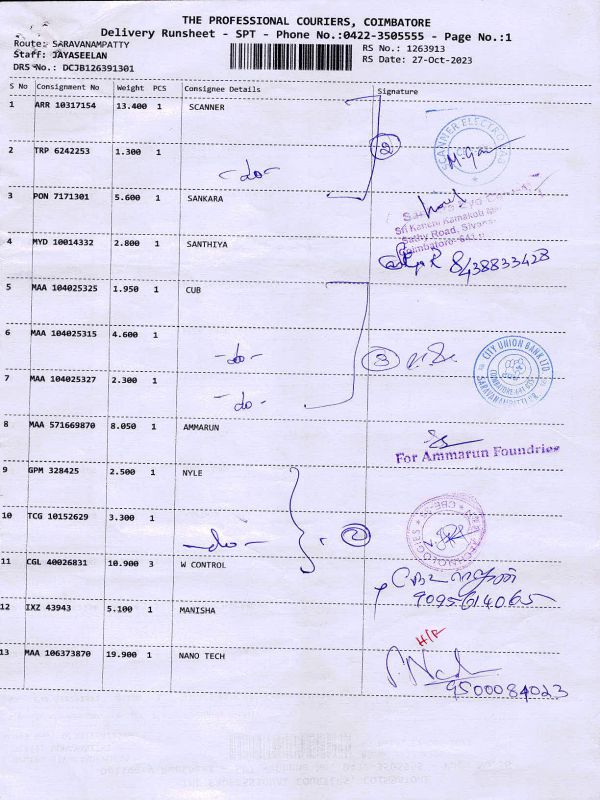 THE PROFESSIONAL COURIERS, COIMBATORE
Delivery Runsheet - SPT - Phone No.:0422-3505555 - Page No.:1
Route: SARAVANAMPATTY
RS No.: 1263913
Staff: JAYASEELAN
RS Date: 27-Oct-2023
DRS No.: DCJB126391301
S No Consignment No Weight PCS Consignee Details Signature
1 ARR 10317154 13.400 1 SCANNER
SCANNER ELECTRO
2 TRP 6242253 1.300 1 -do- 2
3 PON 7171301 5.600 1 SANKARA
Sri Kanchi Kamakoti
Sathy Road, Sivan
Coimbatore
4 MYD 10014332 2.800 1 SANTHIYA
8438833428
5 MAA 104025325 1.950 1 CUB
6 MAA 104025315 4.600 1 -do- 3
CITY UNION BANK LTD
7 MAA 104025327 2.300 1 -do-
8 MAA 571669870 8.050 1 AMMARUN
For Ammarun Foundries
9 GPM 328425 2.500 1 NYLE
10 TCG 10152629 3.300 1 -do- 2
TECHNOLOGIES
11 CGL 40026831 10.900 3 W CONTROL
9095614065
12 IXZ 43943 5.100 1 MANISHA
H/R
13 MAA 106373870 19.900 1 NANO TECH
9500084023